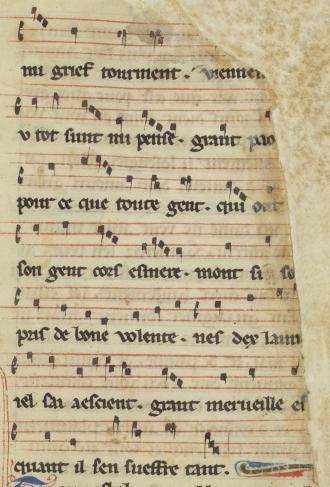 mi grief tourment. viennen
v tot sunt mi pense. grant pao
pour ce que toute gent. qui ont
son gent cors esmere. mont si so
pris de bone volente. nes dex laim
iel sai aescient. grant merueille ei
quant il sen sueffre tant.